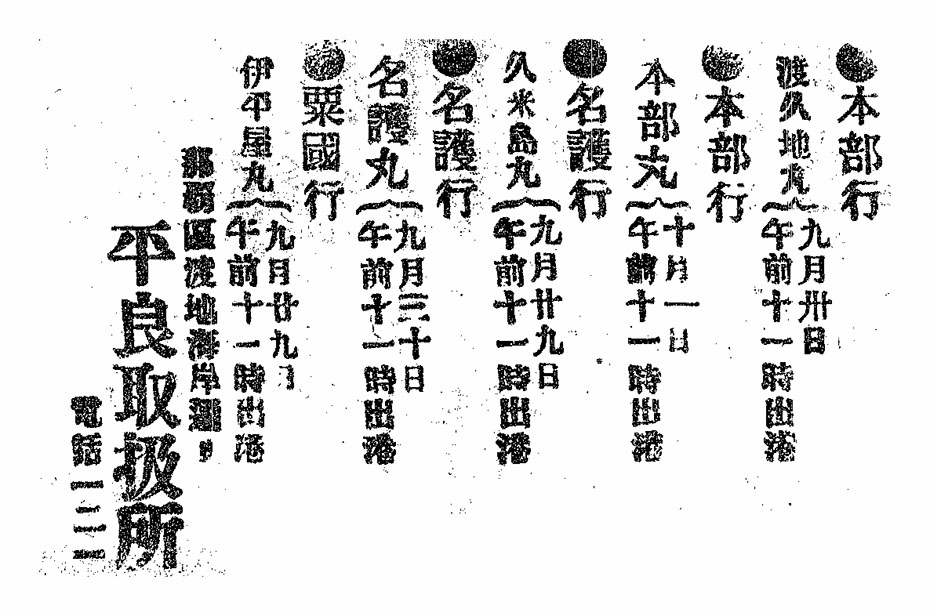 ●本部行
渡久地丸
九月卅日
午前十一時出港
●本部行
本部丸
十月一日
午前十一時出港
●名護行
久米島丸
九月廿九日
午前十一時出港
●名護行
名護丸
九月三十日
午前十一時出港
●粟國行
伊平屋丸
九月廿九日
午前十一時出港
那覇區渡地海岸通り
平良取扱所
電話一二三